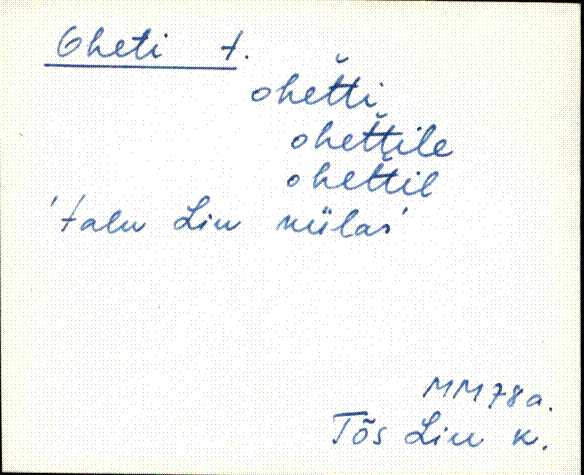 Oheti t.
ohet̆ti
ohet̆tile
ohet̆til
'talu Liu külas'
MM78a.
Tõs Liu k.